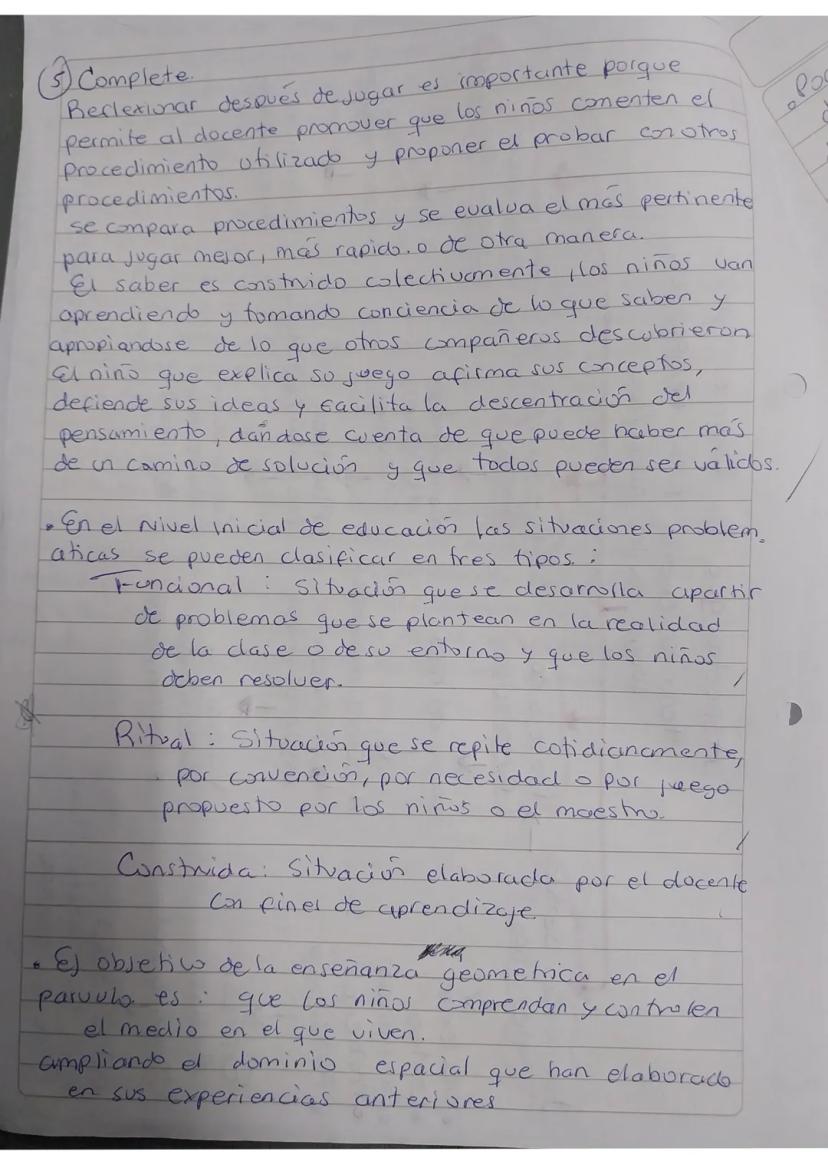 ⑤ Complete.
Reflexionar después de jugar es importante porque
permite al docente promover que los niños comenten el
procedimiento utilizado y proponer el probar con otros
procedimientos.
se compara procedimientos y se evalua el más pertinente
para jugar mejor, más rapido. o de otra manera.
El saber es construido colectivamente, los niños van
aprendiendo y tomando conciencia de lo que saben y
apropiandose de lo que otros compañeros descubrieron
El niño que explica su juego afirma sus conceptos,
defiende sus ideas y facilita la descentración del
pensamiento, dándose cuenta de que puede haber más
de un camino de solución y que todos pueden ser válidos.
• En el Nivel inicial de educación las situaciones problem
aticas se pueden clasificar en tres tipos :
Funcional : Situación que se desarrolla apartir
de problemas que se plantean en la realidad
de la clase o de su entorno y que los niños
deben resolver.
Ritual : Situación que se repite cotidianamente,
por convención, por necesidad o por juego
propuesto por los niños o el maestro.
Construida : Situación elaborada por el docente
con fines de aprendizaje
• El objetivo de la enseñanza geometrica en el
parvulo es : que los niños comprendan y controlen
el medio en el que viven.
ampliando el dominio espacial que han elaborado
en sus experiencias anteriores